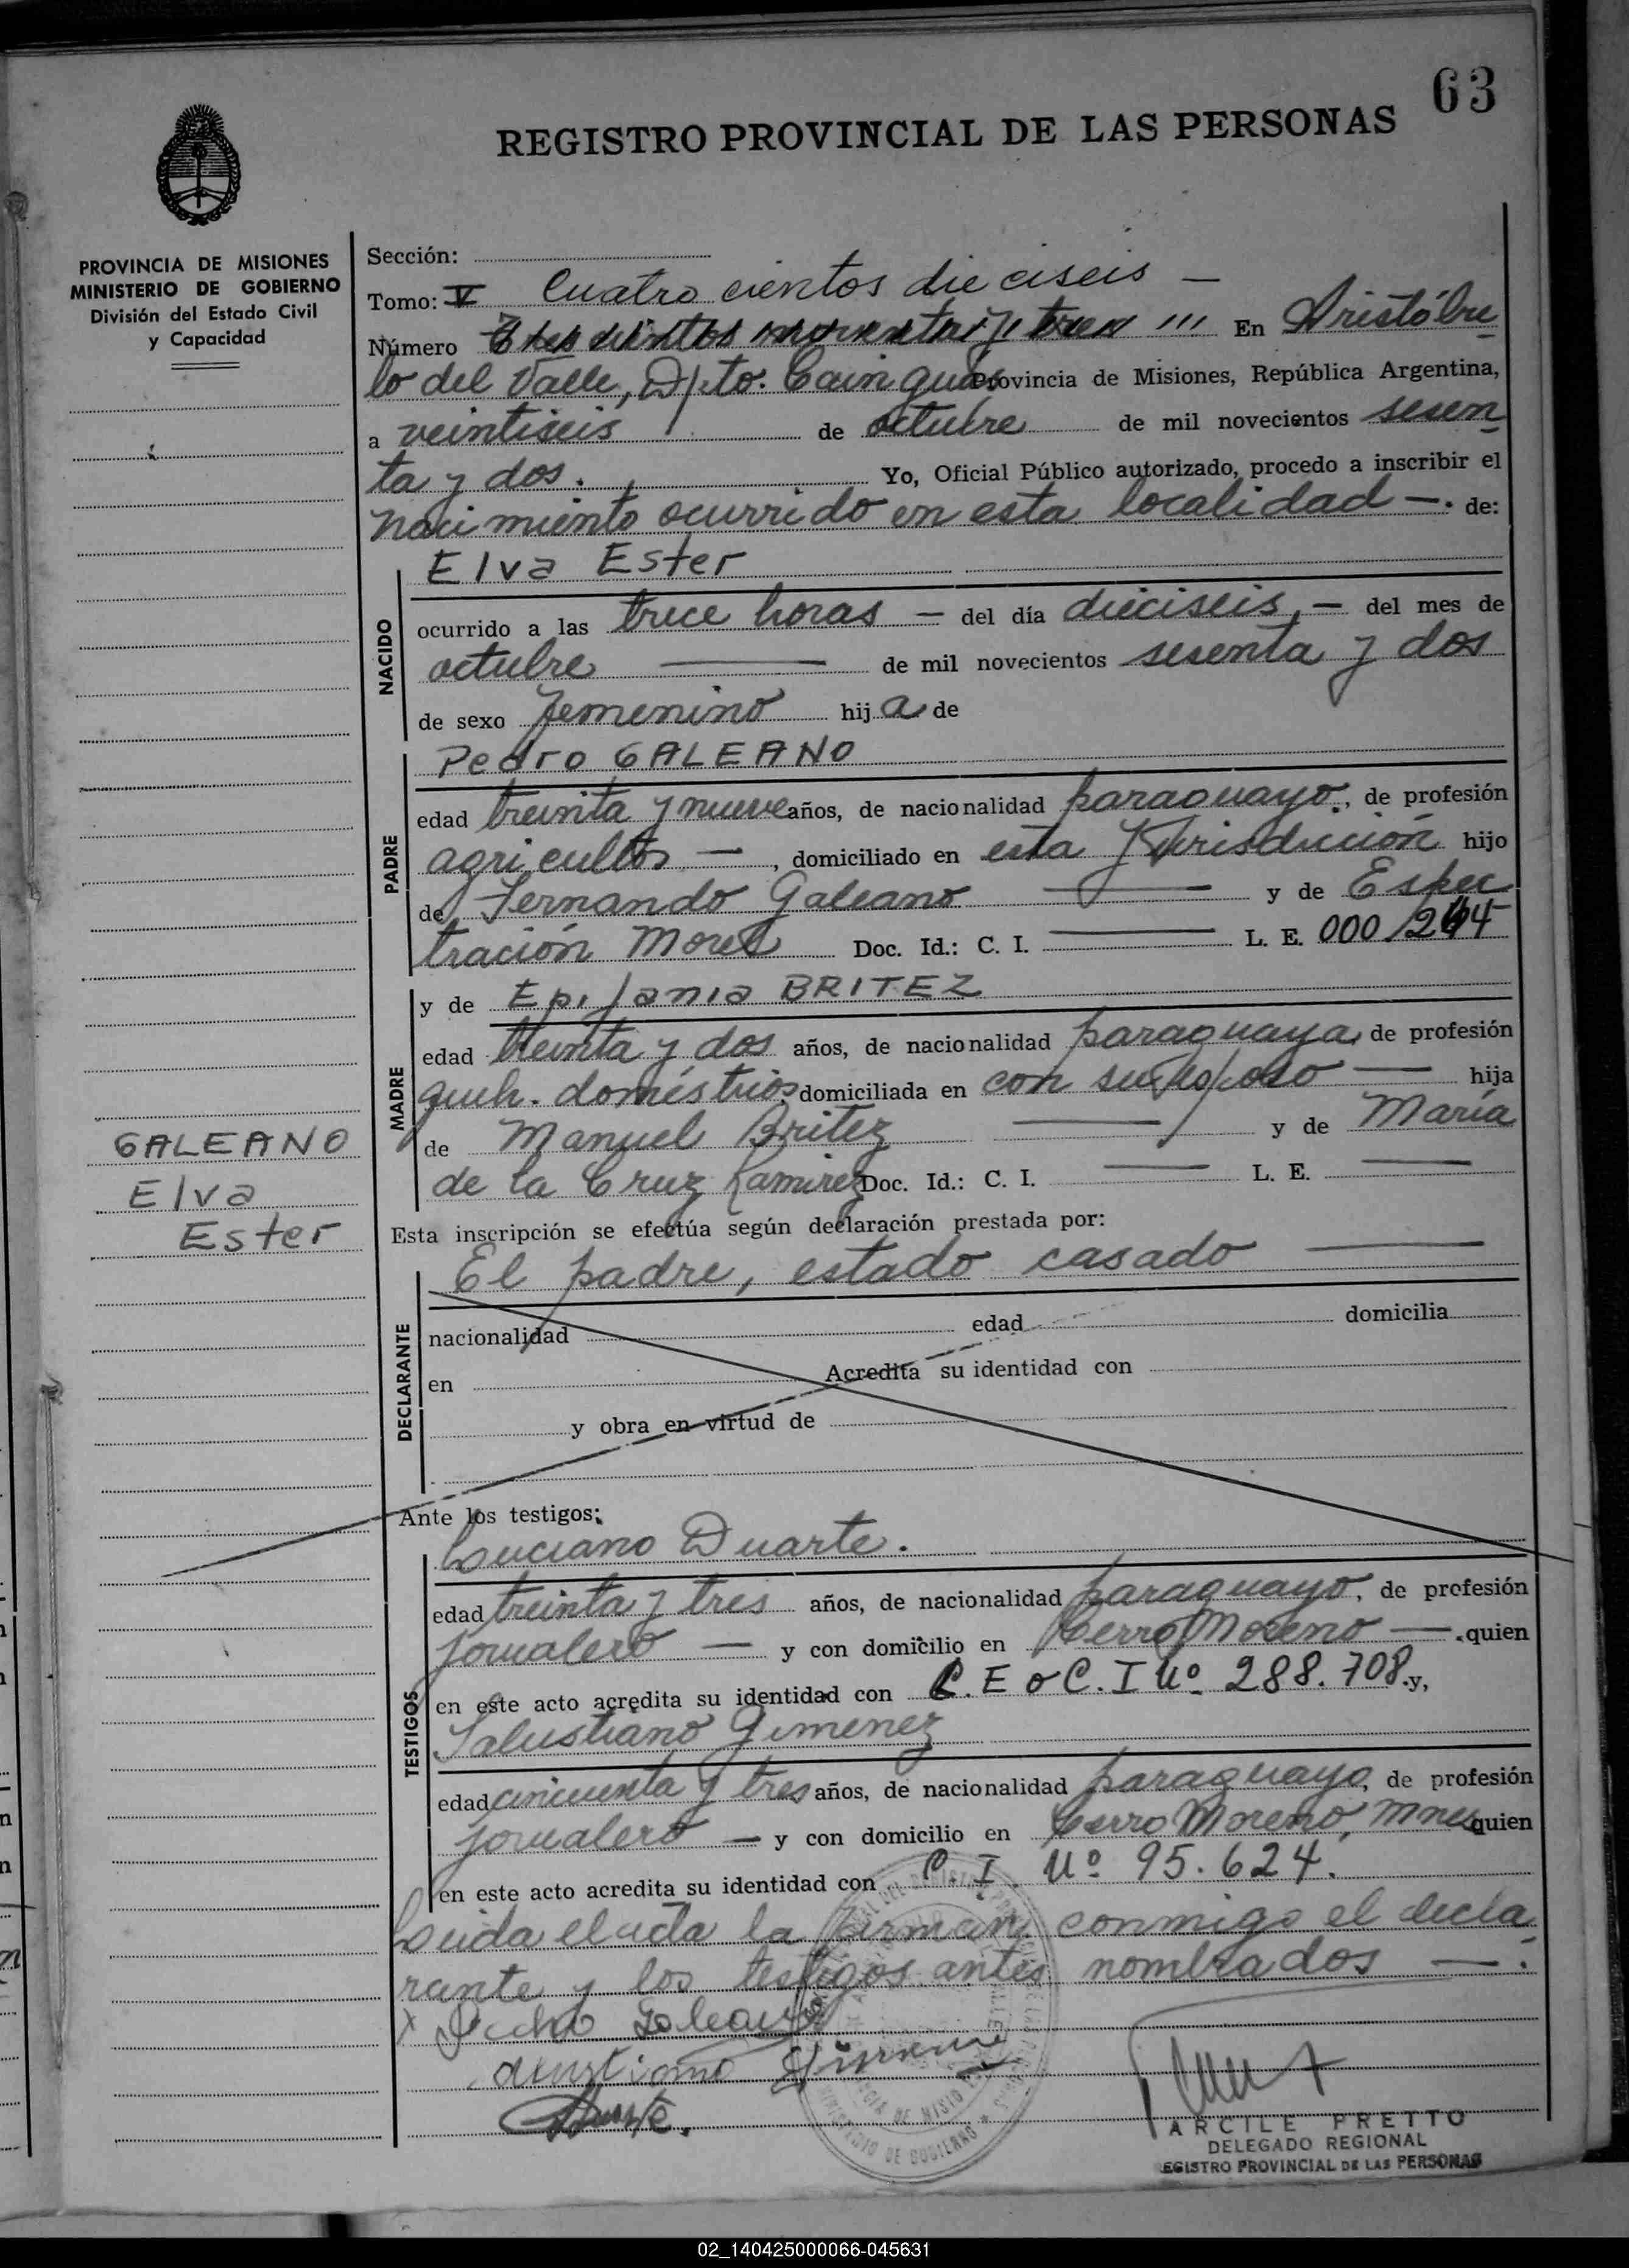 63
REGISTRO PROVINCIAL DE LAS PERSONAS
PROVINCIA DE MISIONES
MINISTERIO DE GOBIERNO
División del Estado Civil
y Capacidad
Sección:
Tomo: V Cuatro cientos die ciseis —
Número Tres cientos noventa y tres ''' En Aristóbu
lo del Valle, Dpto. Cainguas Provincia de Misiones, República Argentina,
a veintiseis de octubre de mil novecientos sesen
ta y dos. Yo, Oficial Público autorizado, procedo a inscribir el
nacimiento ocurrido en esta localidad —. de:
Elva Ester
NACIDO
ocurrido a las trece horas — del día dieciseis, — del mes de
octubre — de mil novecientos sesenta y dos
de sexo femenino hija de
Pedro GALEANO
PADRE
edad treinta y nueve años, de nacionalidad paraguayo, de profesión
agricultor —, domiciliado en esta Jurisdicción hijo
de Fernando Galeano — y de Espec
tración Mored Doc. Id.: C. I. — L. E. 000/244
y de Epifania BRITEZ
MADRE
edad treinta y dos años, de nacionalidad paraguaya, de profesión
queh. domestrios domiciliada en con su esposo — hija
de Manuel Britez — y de María
de la Cruz Ramirez Doc. Id.: C. I. — L. E. —
GALEANO
Elva
Ester
Esta inscripción se efectúa según declaración prestada por:
El padre, estado casado —
DECLARANTE
nacionalidad edad domicilia
en Acredita su identidad con
y obra en virtud de
Ante los testigos:
Luciano Duarte.
TESTIGOS
edad treinta y tres años, de nacionalidad paraguayo, de profesión
jornalero — y con domicilio en Cerro Moreno — . quien
en este acto acredita su identidad con C. E o C. I Nº 288.708. y,
Salustiano Gimenez
edad cincuenta y tres años, de nacionalidad paraguayo, de profesión
jornalero — y con domicilio en Cerro Moreno, Mnes quien
en este acto acredita su identidad con C I. Nº 95.624.
Leida el acta la firman conmigo el decla
rante y los testigos antes nombrados — .
x Galeano
Duarte.
ARCILE PRETTO
DELEGADO REGIONAL
EGISTRO PROVINCIAL DE LAS PERSONAS
02_140425000066-045631